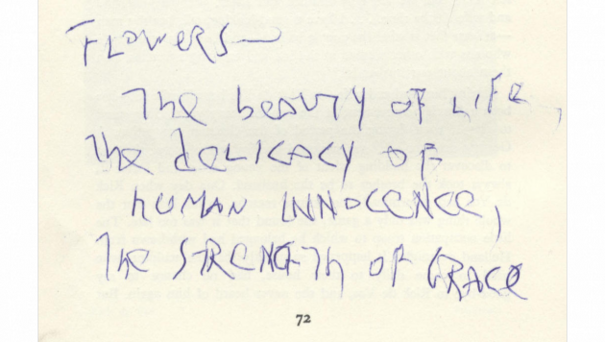 FLOWERS—
The beauty of LIFe,
The deLICACY OF
hUMAN INNOCENCe,
The STRENGTh OF GRACe
72